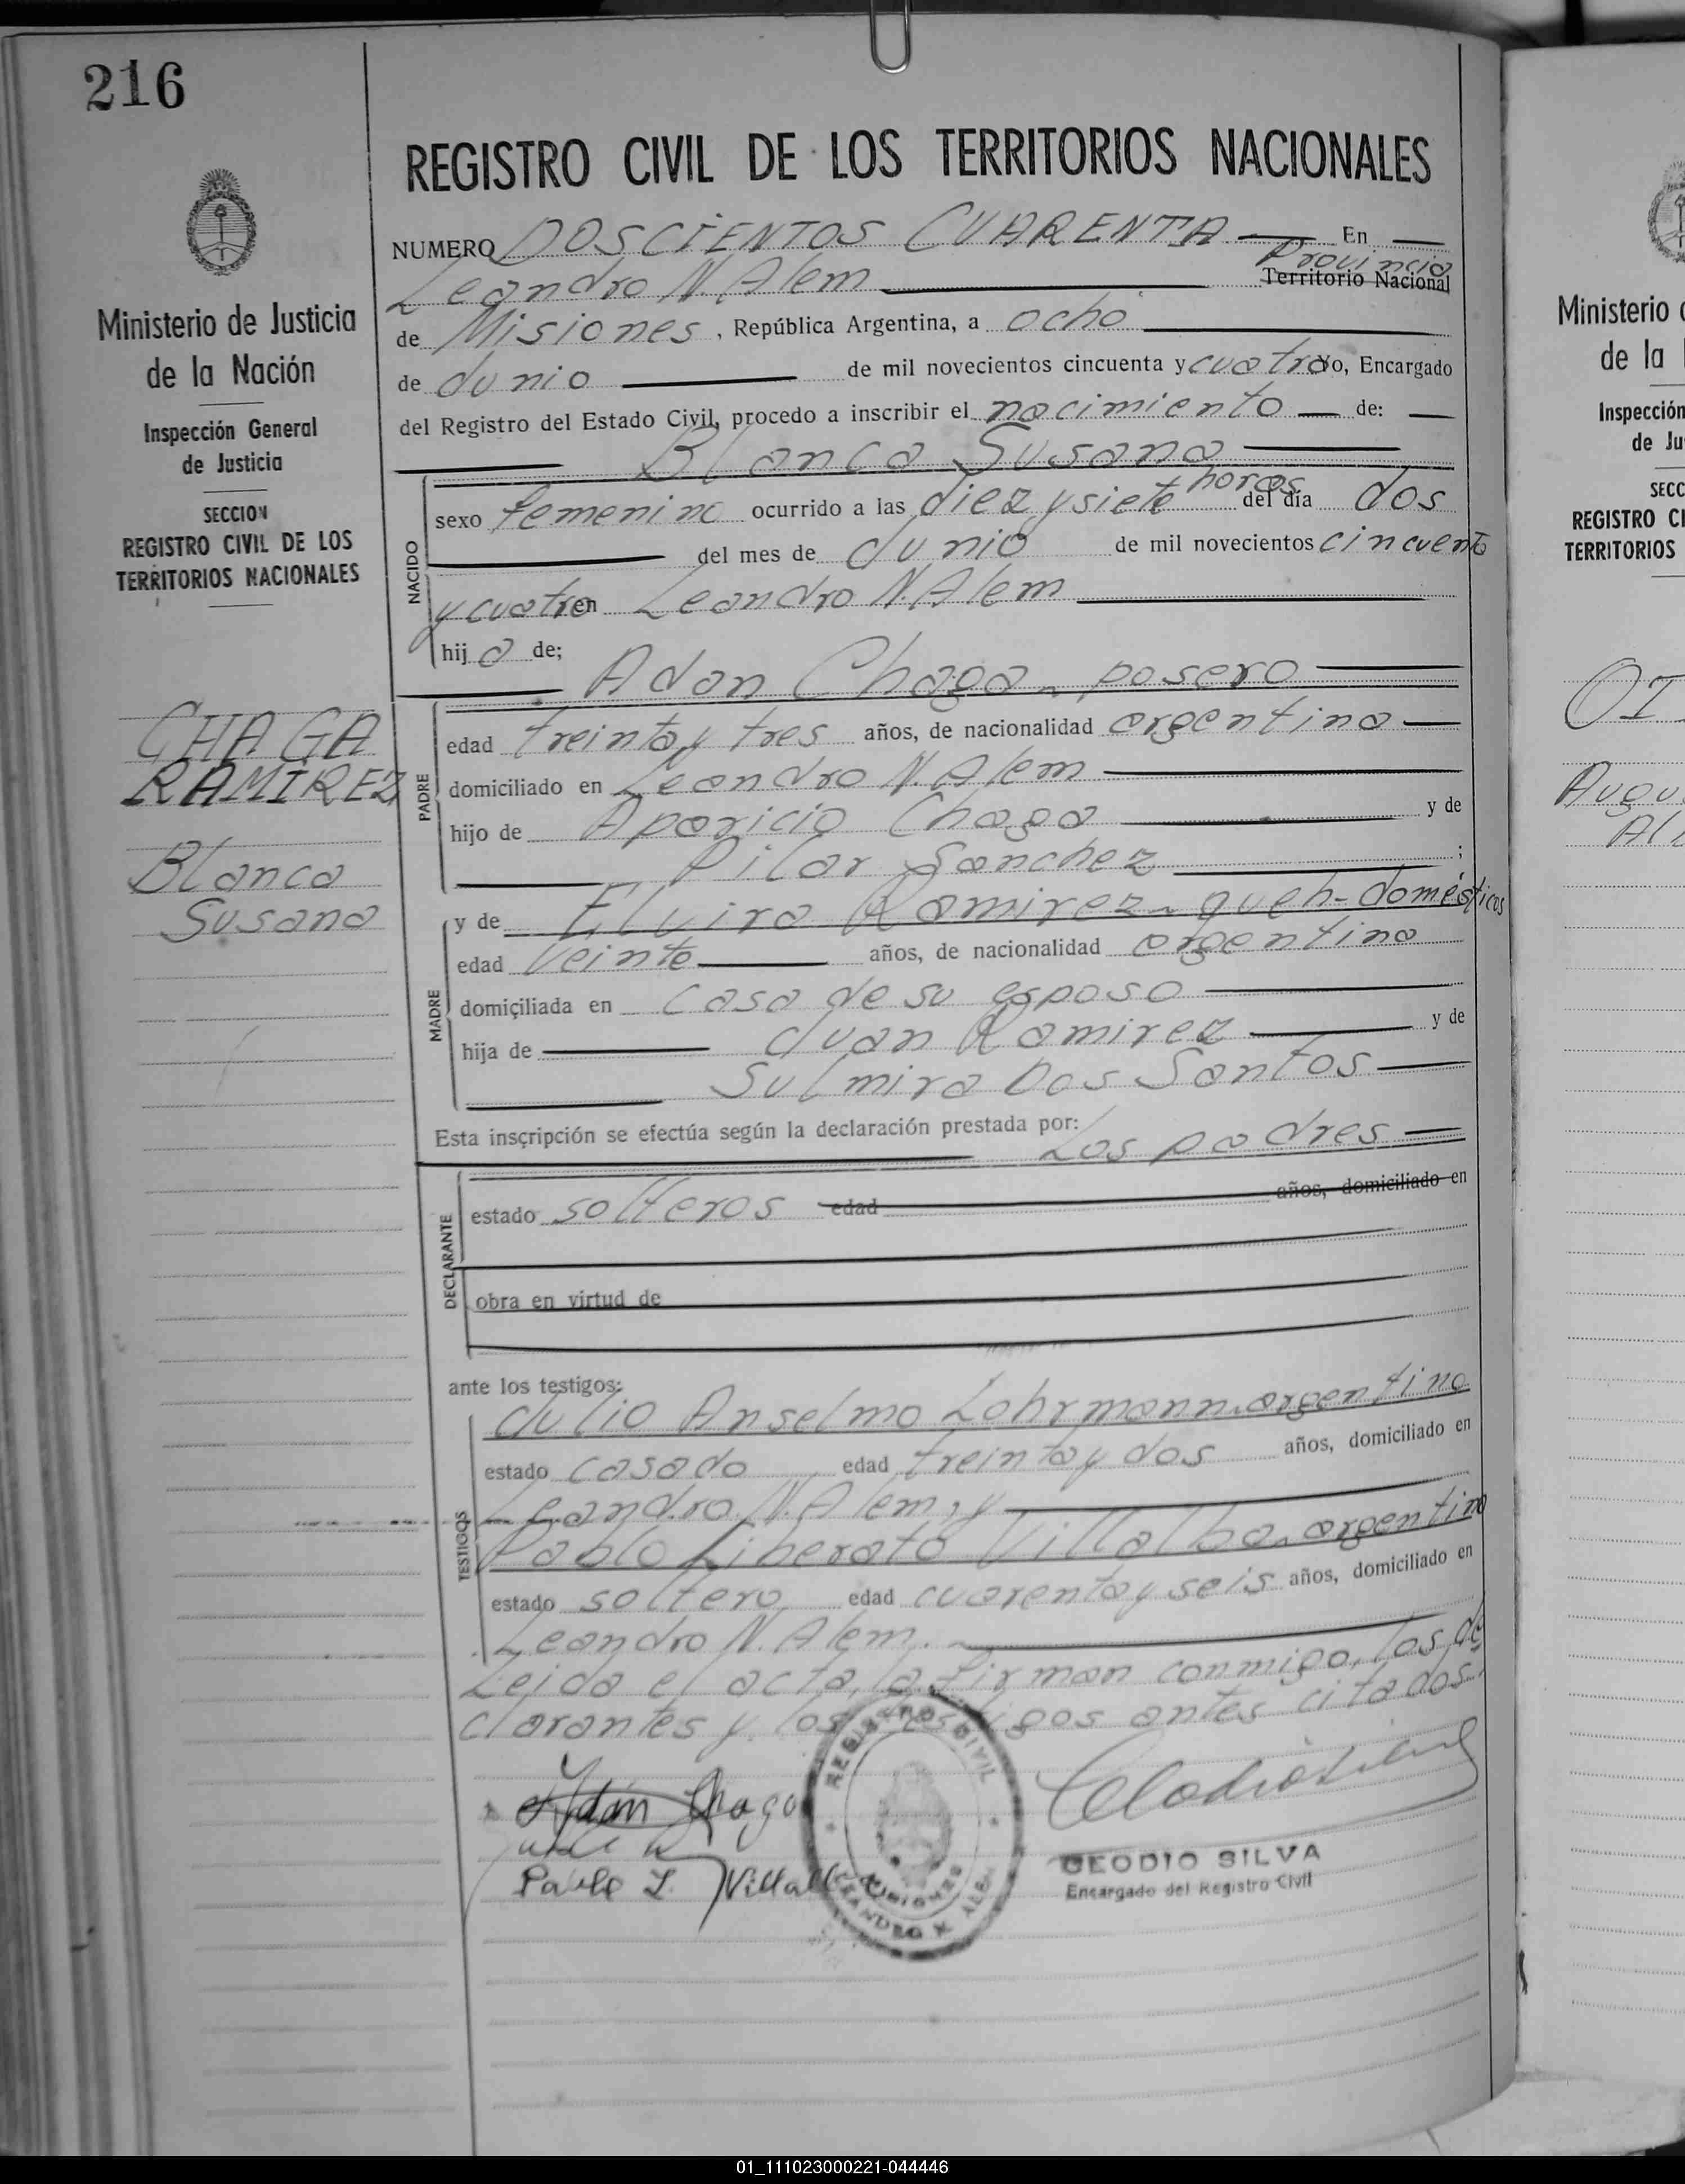 216
REGISTRO CIVIL DE LOS TERRITORIOS NACIONALES
NUMERO DOSCIENTOS CUARENTA En
Provincia
Leandro N. Alem Territorio Nacional
de Misiones, República Argentina, a ocho
de Junio de mil novecientos cincuenta y cuatro Yo, Encargado
del Registro del Estado Civil, procedo a inscribir el nacimiento de:
Blanca Susana
NACIDO
sexo femenino ocurrido a las diez y siete horas del día dos
del mes de Junio de mil novecientos cincuenta
y cuatro en Leandro N. Alem
hija de;
Adan Chaga - posero
PADRE
edad treinta y tres años, de nacionalidad argentino
domiciliado en Leandro N. Alem
hijo de Aparicio Chaga y de
Pilar Sanchez ;
MADRE
y de Elvira Ramirez - queh-domésticos
edad veinte años, de nacionalidad argentina
domiciliada en casa de su esposo
hija de Juan Ramirez y de
Sulmira Dos Santos
Esta inscripción se efectúa según la declaración prestada por:
Los padres
DECLARANTE
estado solteros edad años, domiciliado en
obra en virtud de
ante los testigos:
TESTIGOS
Julio Anselmo Lohrmann argentino
estado casado edad treinta y dos años, domiciliado en
Leandro N. Alem, y
Pablo Liberato Villalba argentino
estado soltero edad cuarenta y seis años, domiciliado en
Leandro N. Alem.
Leida el acta, la firman conmigo, los de
clarantes y los testigos antes citados.
Adán Chaga
Pablo L. Villalba
REGISTRO CIVIL
MISIONES
LEANDRO N. ALEM
CLODIO SILVA
Encargado del Registro Civil
Ministerio de Justicia
de la Nación
Inspección General
de Justicia
SECCION
REGISTRO CIVIL DE LOS
TERRITORIOS NACIONALES
CHAGA
RAMIREZ
Blanca
Susana
Ministerio
de la
Inspección
de Ju
SECC
REGISTRO CI
TERRITORIOS
01_111023000221-044446